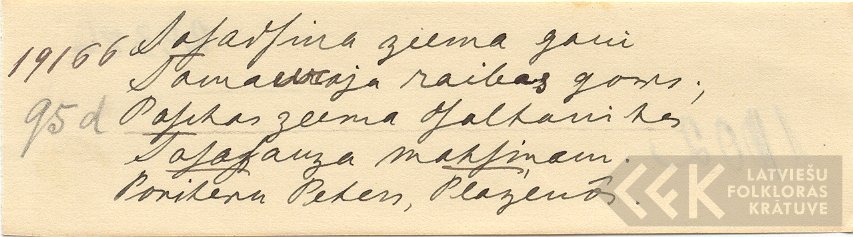 19166 Saſadſina zeema gani
Samauroja raibas gows;
95d Paſchas zeema ſaltanites
Saſaſauza mahſiņam.
Poriteru Peters, Plaženōs.
LATVIEŠU
FOLKLORAS
KRĀTUVE
LFK